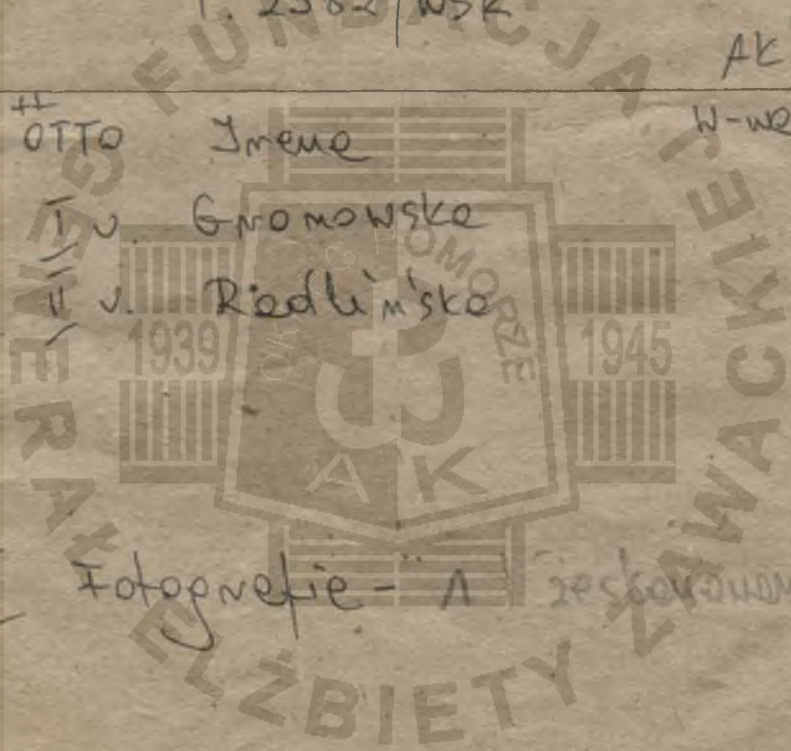 T. 2982/WSK
AK
++
OTTO Irena W-wa
I v. Gromowska
II v. Riedlińska
Fotografie - 1 zeskanowano
FUNDACJA GENERAŁ ELŻBIETY ZAWACKIEJ
OKRĘG POMORZE
1939 1945
AK